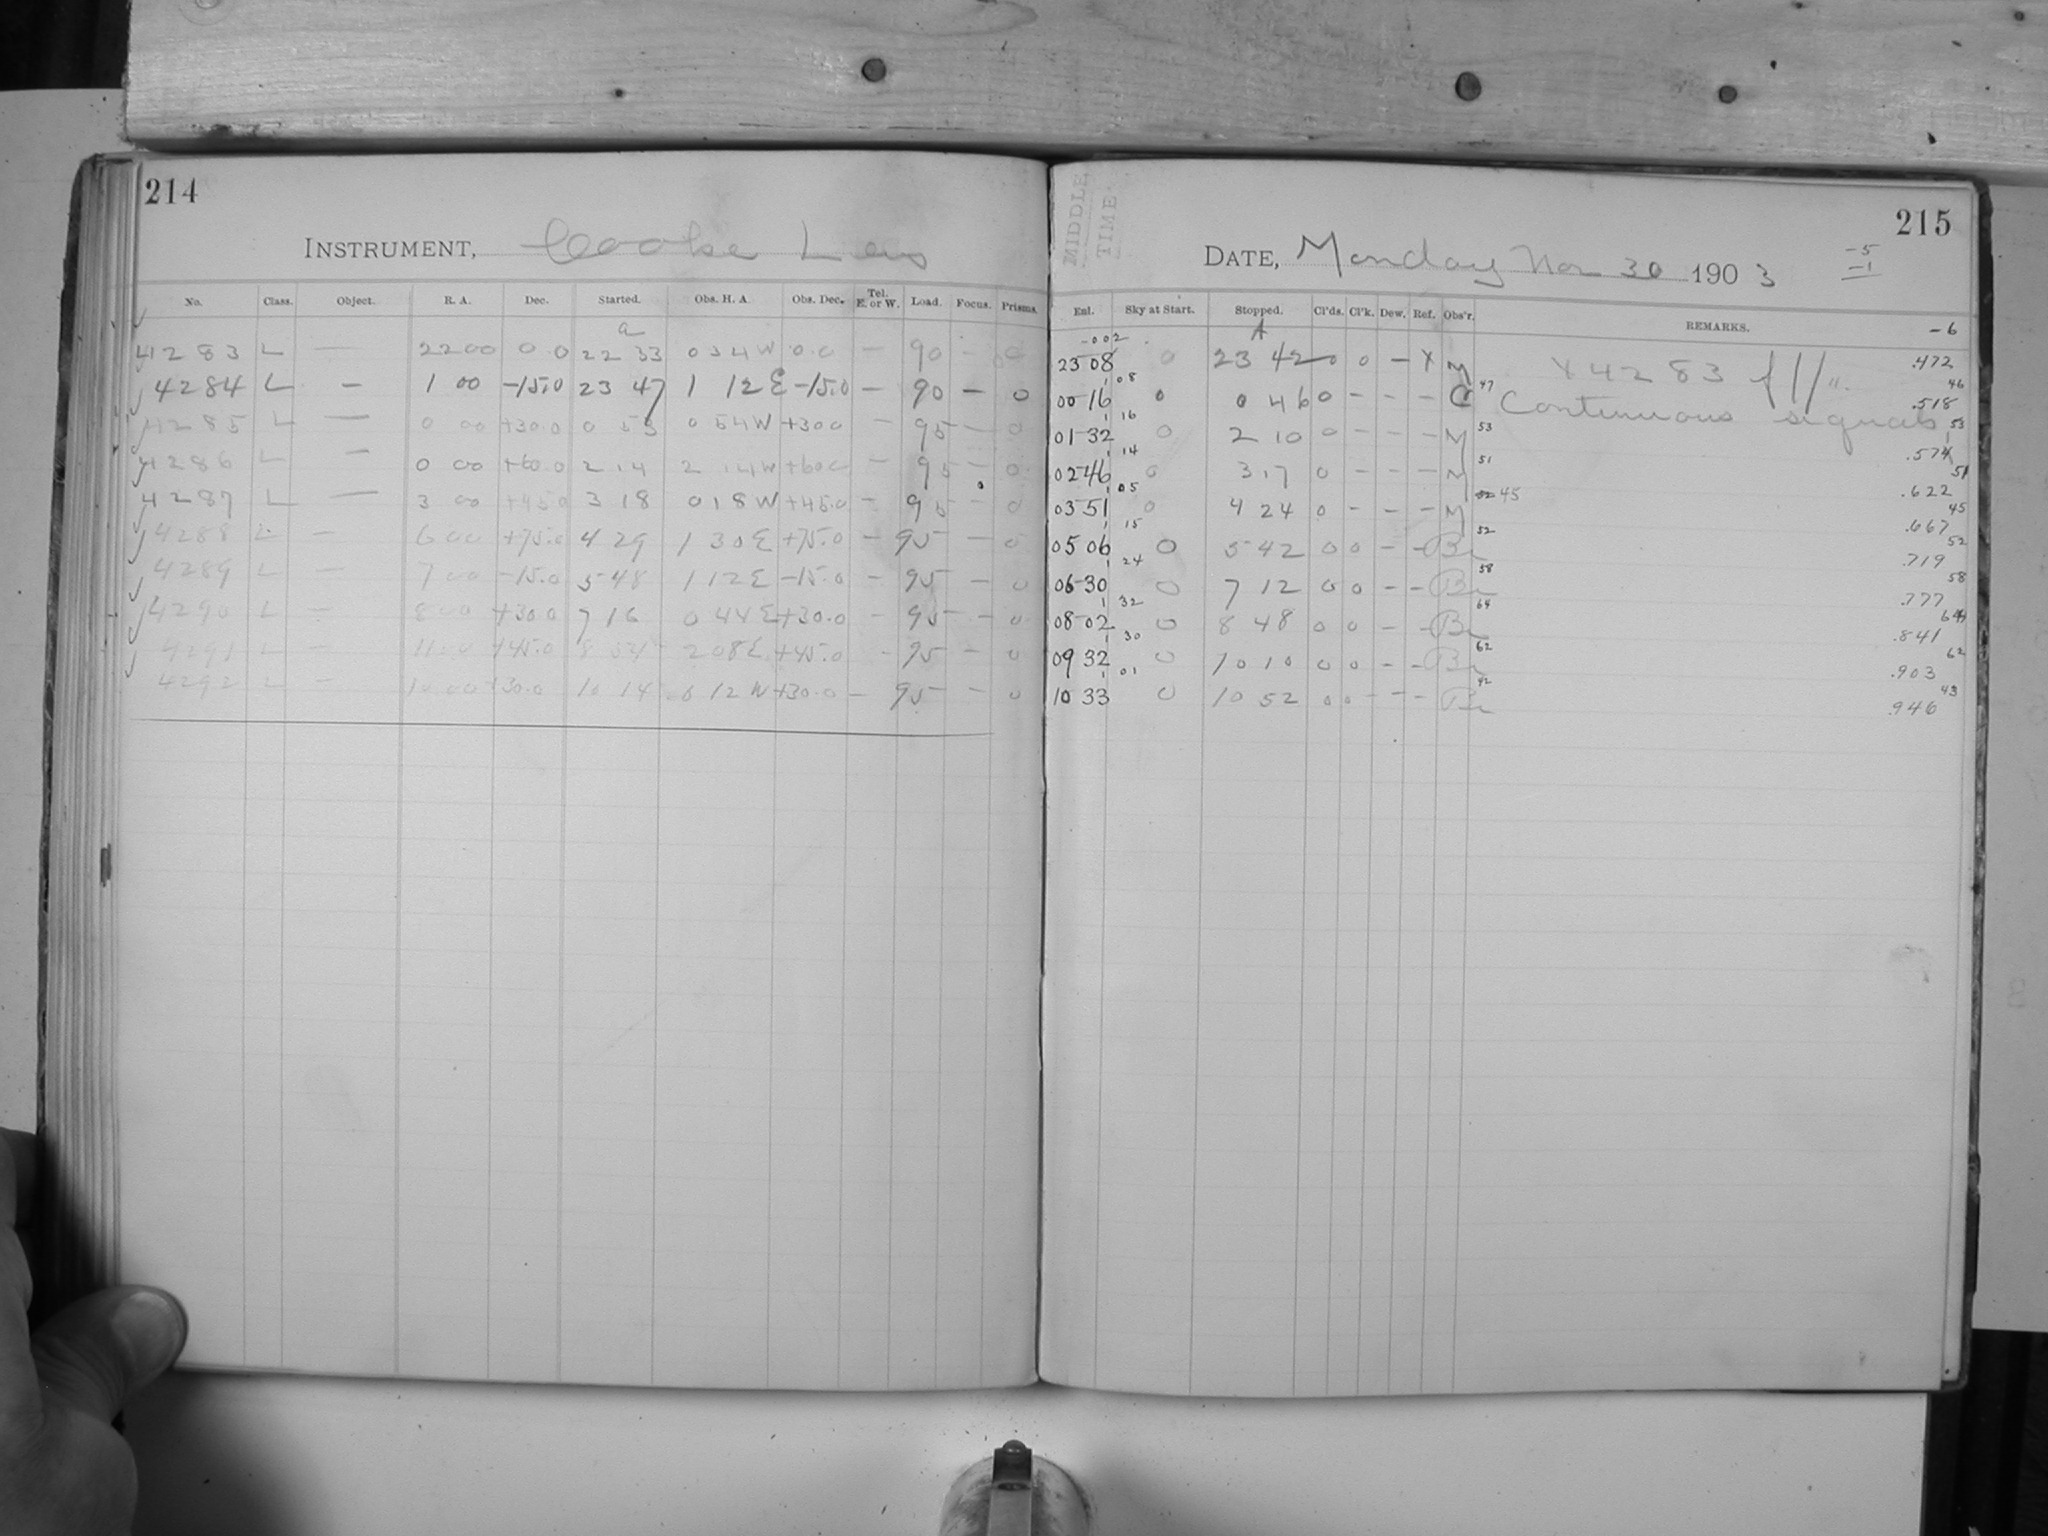 214
INSTRUMENT, Cooke Lens
No. Class. Object. R. A. Dec. Started. Obs. H. A. Obs. Dec. Tel. E. or W. Load. Focus. Prisms.
a
4283 L — 22 00 0.0 22 33 0 34 W 0.0 — 90 — 0
4284 L — 1 00 -15.0 23 47 1 12 E -15.0 — 90 — 0
4285 L — 0 00 +30.0 0 53 0 54 W +30.0 — 95 — 0
4286 L — 0 00 +60.0 2 14 2 14 W +60.0 — 95 — 0
4287 L — 3 00 +45.0 3 18 0 18 W +45.0 — 95 — 0
4288 L — 6 00 +75.0 4 29 1 30 E +75.0 — 95 — 0
4289 L — 7 00 -15.0 5 48 1 12 E -15.0 — 95 — 0
4290 L — 8 00 +30.0 7 16 0 44 E +30.0 — 95 — 0
4291 L — 11 00 +45.0 8 54 2 08 E +45.0 — 95 — 0
4292 L — 10 00 +30.0 10 14 0 12 W +30.0 — 95 — 0
MIDDLE
TIME.
215
DATE, Monday Nov 30 1903
-5
-1
Enl. Sky at Start. Stopped. Cl'ds. Cl'k. Dew. Ref. Obs'r. REMARKS. -6
-002 A
23 08 0 23 42 0 0 — X M X 4283 fll". .472
08 47 46
00 16 0 0 46 0 - - - C Continuous signals .518
16 53 53
01 32 0 2 10 0 - - - M .571
14 51 51
02 46 0 3 17 0 - - - M .622
05 45 45
03 51 0 4 24 0 - - - M .667
15 52 52
05 06 0 5 42 0 0 - - Br .719
24 58 58
06 30 0 7 12 0 0 - - Br .777
32 64 64
08 02 0 8 48 0 0 - - Br .841
30 62 62
09 32 0 10 10 0 0 - - Br .903
01 42 43
10 33 0 10 52 0 0 - - - Br .946